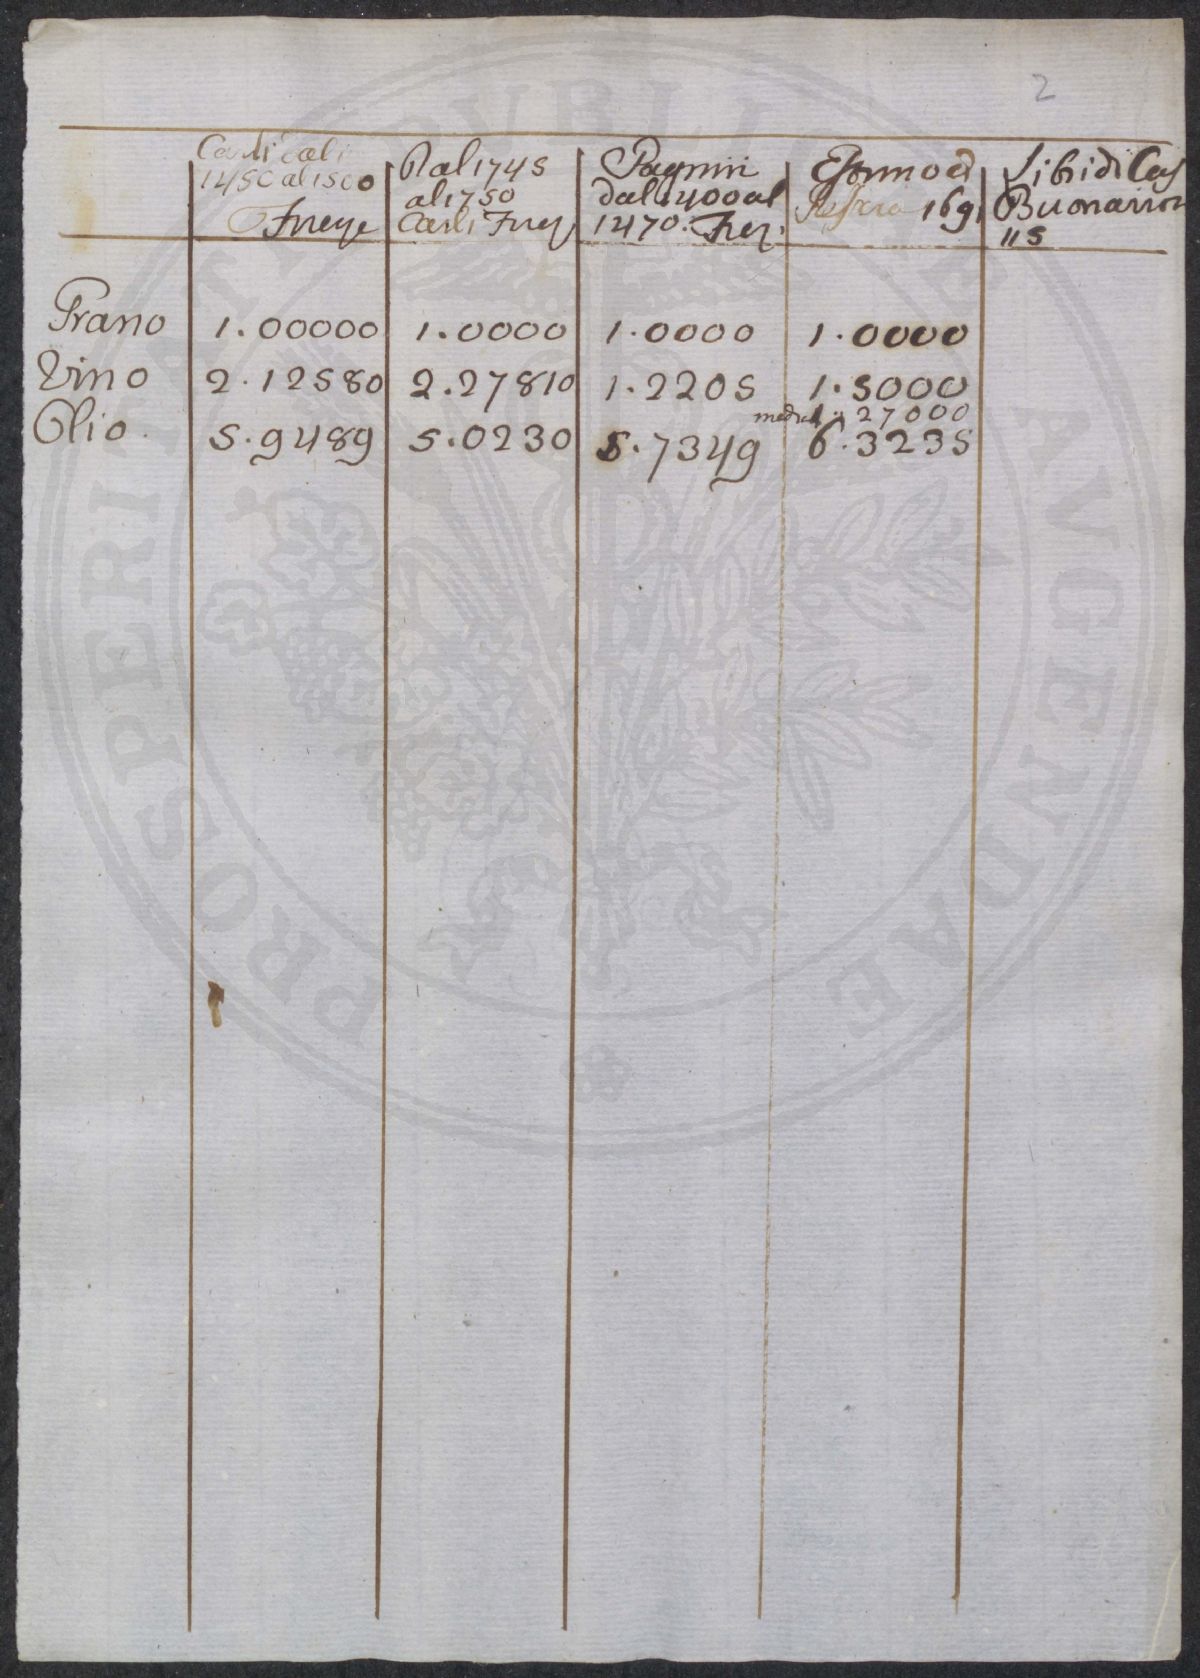 2
Carli dal
1450 al 1500
Firenze
Dal 1745
al 1750
Carli Firenz
Pagnini
dal 1400 al
1470. Firz.
1691
Libri di Cas
Buonarro
115
Grano 1.00000 1.0000 1.0000 1.0000
Vino 2.12580 2.27810 1.2205 1.5000
1.27000
Olio. 5.9489 5.0230 5.7349 6.3235
PROSPERITATI PUBLICAE AVGENDAE